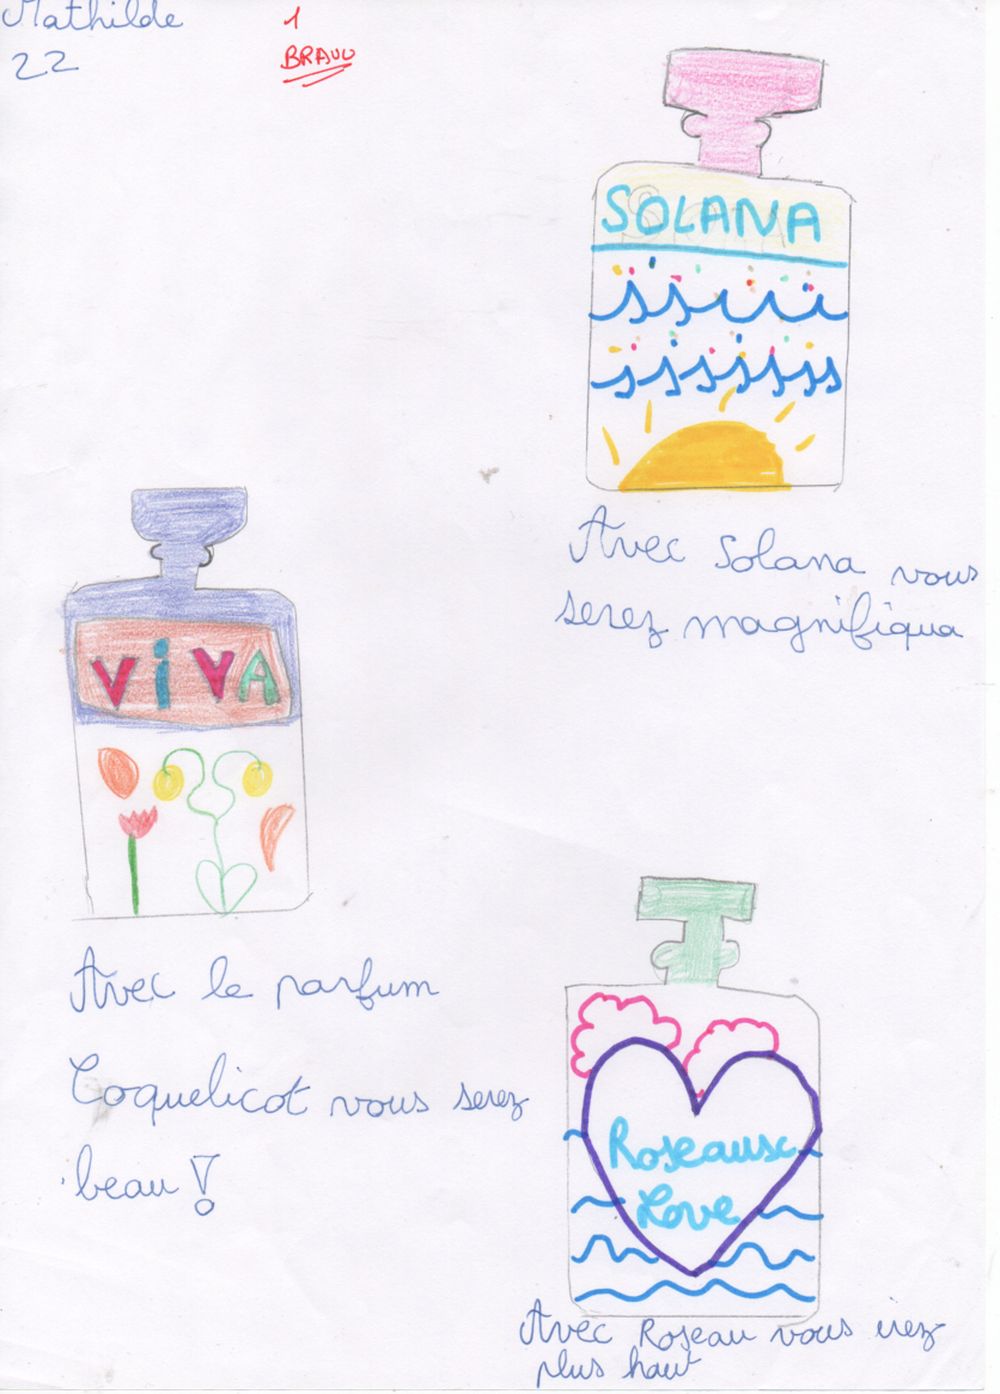 Mathilde
22
1
BRAVO
SOLANA
Avec Solana vous
serez magnifiqua
VIVA
Avec le parfum
Coquelicot vous serez
beau !
Roseaux
Love
Avec Roseau vous irez
plus haut